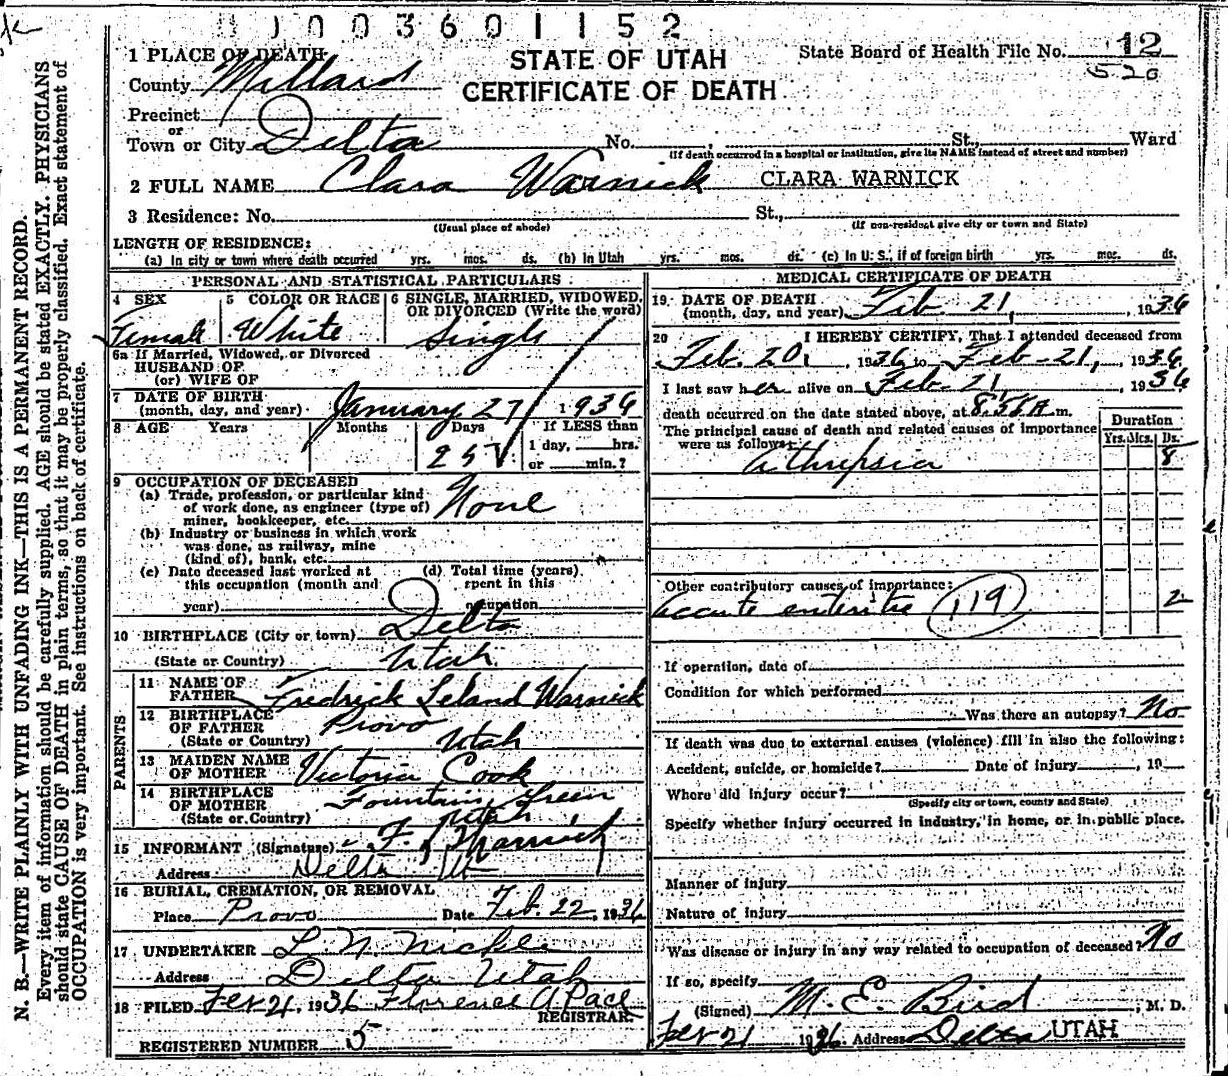 1 0 0 3 6 0 1 1 5 2
1 PLACE OF DEATH
STATE OF UTAH
CERTIFICATE OF DEATH
State Board of Health File No. 12
520
County Millard
Precinct
or
Town or City Delta No. , St., Ward
(If death occurred in a hospital or institution, give its NAME instead of street and number)
2 FULL NAME Clara Warnick CLARA WARNICK
3 Residence: No. St.,
(Usual place of abode) (If non-resident give city or town and State)
LENGTH OF RESIDENCE:
(a) In city or town where death occurred yrs. mos. ds. (b) In Utah yrs. mos. ds. (c) In U. S., if of foreign birth yrs. mos. ds.
PERSONAL AND STATISTICAL PARTICULARS
4 SEX
Female
5 COLOR OR RACE
White
6 SINGLE, MARRIED, WIDOWED,
OR DIVORCED (Write the word)
Single
6a If Married, Widowed, or Divorced
HUSBAND OF
(or) WIFE OF
7 DATE OF BIRTH
(month, day, and year) January 27 1936
8 AGE Years Months Days If LESS than
25 1 day, hrs.
or min.?
9 OCCUPATION OF DECEASED
(a) Trade, profession, or particular kind
of work done, as engineer (type of)
miner, bookkeeper, etc. None
(b) Industry or business in which work
was done, as railway, mine
(kind of), bank, etc.
(c) Date deceased last worked at
this occupation (month and
year)
(d) Total time (years)
spent in this
occupation
10 BIRTHPLACE (City or town) Delta
(State or Country) Utah
PARENTS
11 NAME OF
FATHER Fredrick Leland Warnick
12 BIRTHPLACE
OF FATHER Provo
(State or Country) Utah
13 MAIDEN NAME
OF MOTHER Victoria Cook
14 BIRTHPLACE
OF MOTHER Fountain Green
(State or Country) Utah
15 INFORMANT (Signature) F. Warnick
Address Delta Ut
16 BURIAL, CREMATION, OR REMOVAL
Place Provo Date Feb. 22, 1936
17 UNDERTAKER L. N. Nickle
Address Delta Utah
18 FILED Feb 21, 1936 Florence A. Pace
REGISTRAR.
REGISTERED NUMBER 5
MEDICAL CERTIFICATE OF DEATH
19 DATE OF DEATH
(month, day, and year) Feb. 21, 1936
20 I HEREBY CERTIFY, That I attended deceased from
Feb. 20, 1936 to Feb-21, 1936
I last saw her alive on Feb. 21 1936
death occurred on the date stated above, at 8.55A m.
The principal cause of death and related causes of importance
were as follows:
Duration
Yrs. Mcs. Ds.
Athrepsia 8
Other contributory causes of importance:
accute enteritie 119 2
If operation, date of
Condition for which performed
Was there an autopsy? No
If death was due to external causes (violence) fill in also the following:
Accident, suicide, or homicide? Date of injury , 19
Where did injury occur?
(Specify city or town, county and State)
Specify whether injury occurred in industry, in home, or in public place.
Manner of injury
Nature of injury
Was disease or injury in any way related to occupation of deceased? No
If so, specify
(Signed) M. E. Bird , M. D.
Feb 21 1936. Address Delta UTAH
N. B.—WRITE PLAINLY WITH UNFADING INK—THIS IS A PERMANENT RECORD.
Every item of information should be carefully supplied. AGE should be stated EXACTLY. PHYSICIANS
should state CAUSE OF DEATH in plain terms, so that it may be properly classified. Exact statement of
OCCUPATION is very important. See instructions on back of certificate.